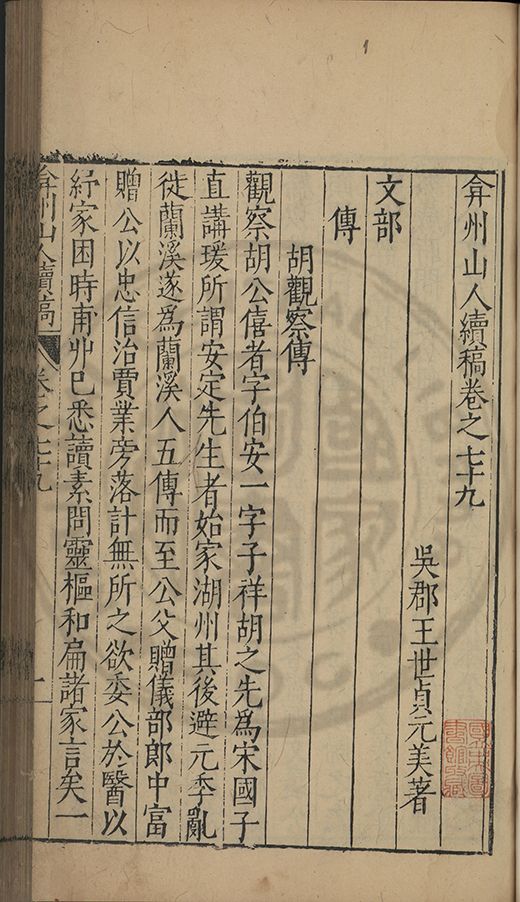 弇州山人續稿卷之七十九
吳郡王世貞元美著
文部
傳
胡觀察傳
觀察胡公僖者字伯安一字子祥胡之先爲宋國子
直講瑗所謂安定先生者始家湖州其後避元季亂
徙蘭溪遂爲蘭溪人五傳而至公父贈儀部郎中富
贈公以忠信治賈業旁落計無所之欲委公於醫以
紓家困時甫丱巳悉讀素問靈樞和扁諸家言矣一
弇州山人續稿
卷之七十九
一